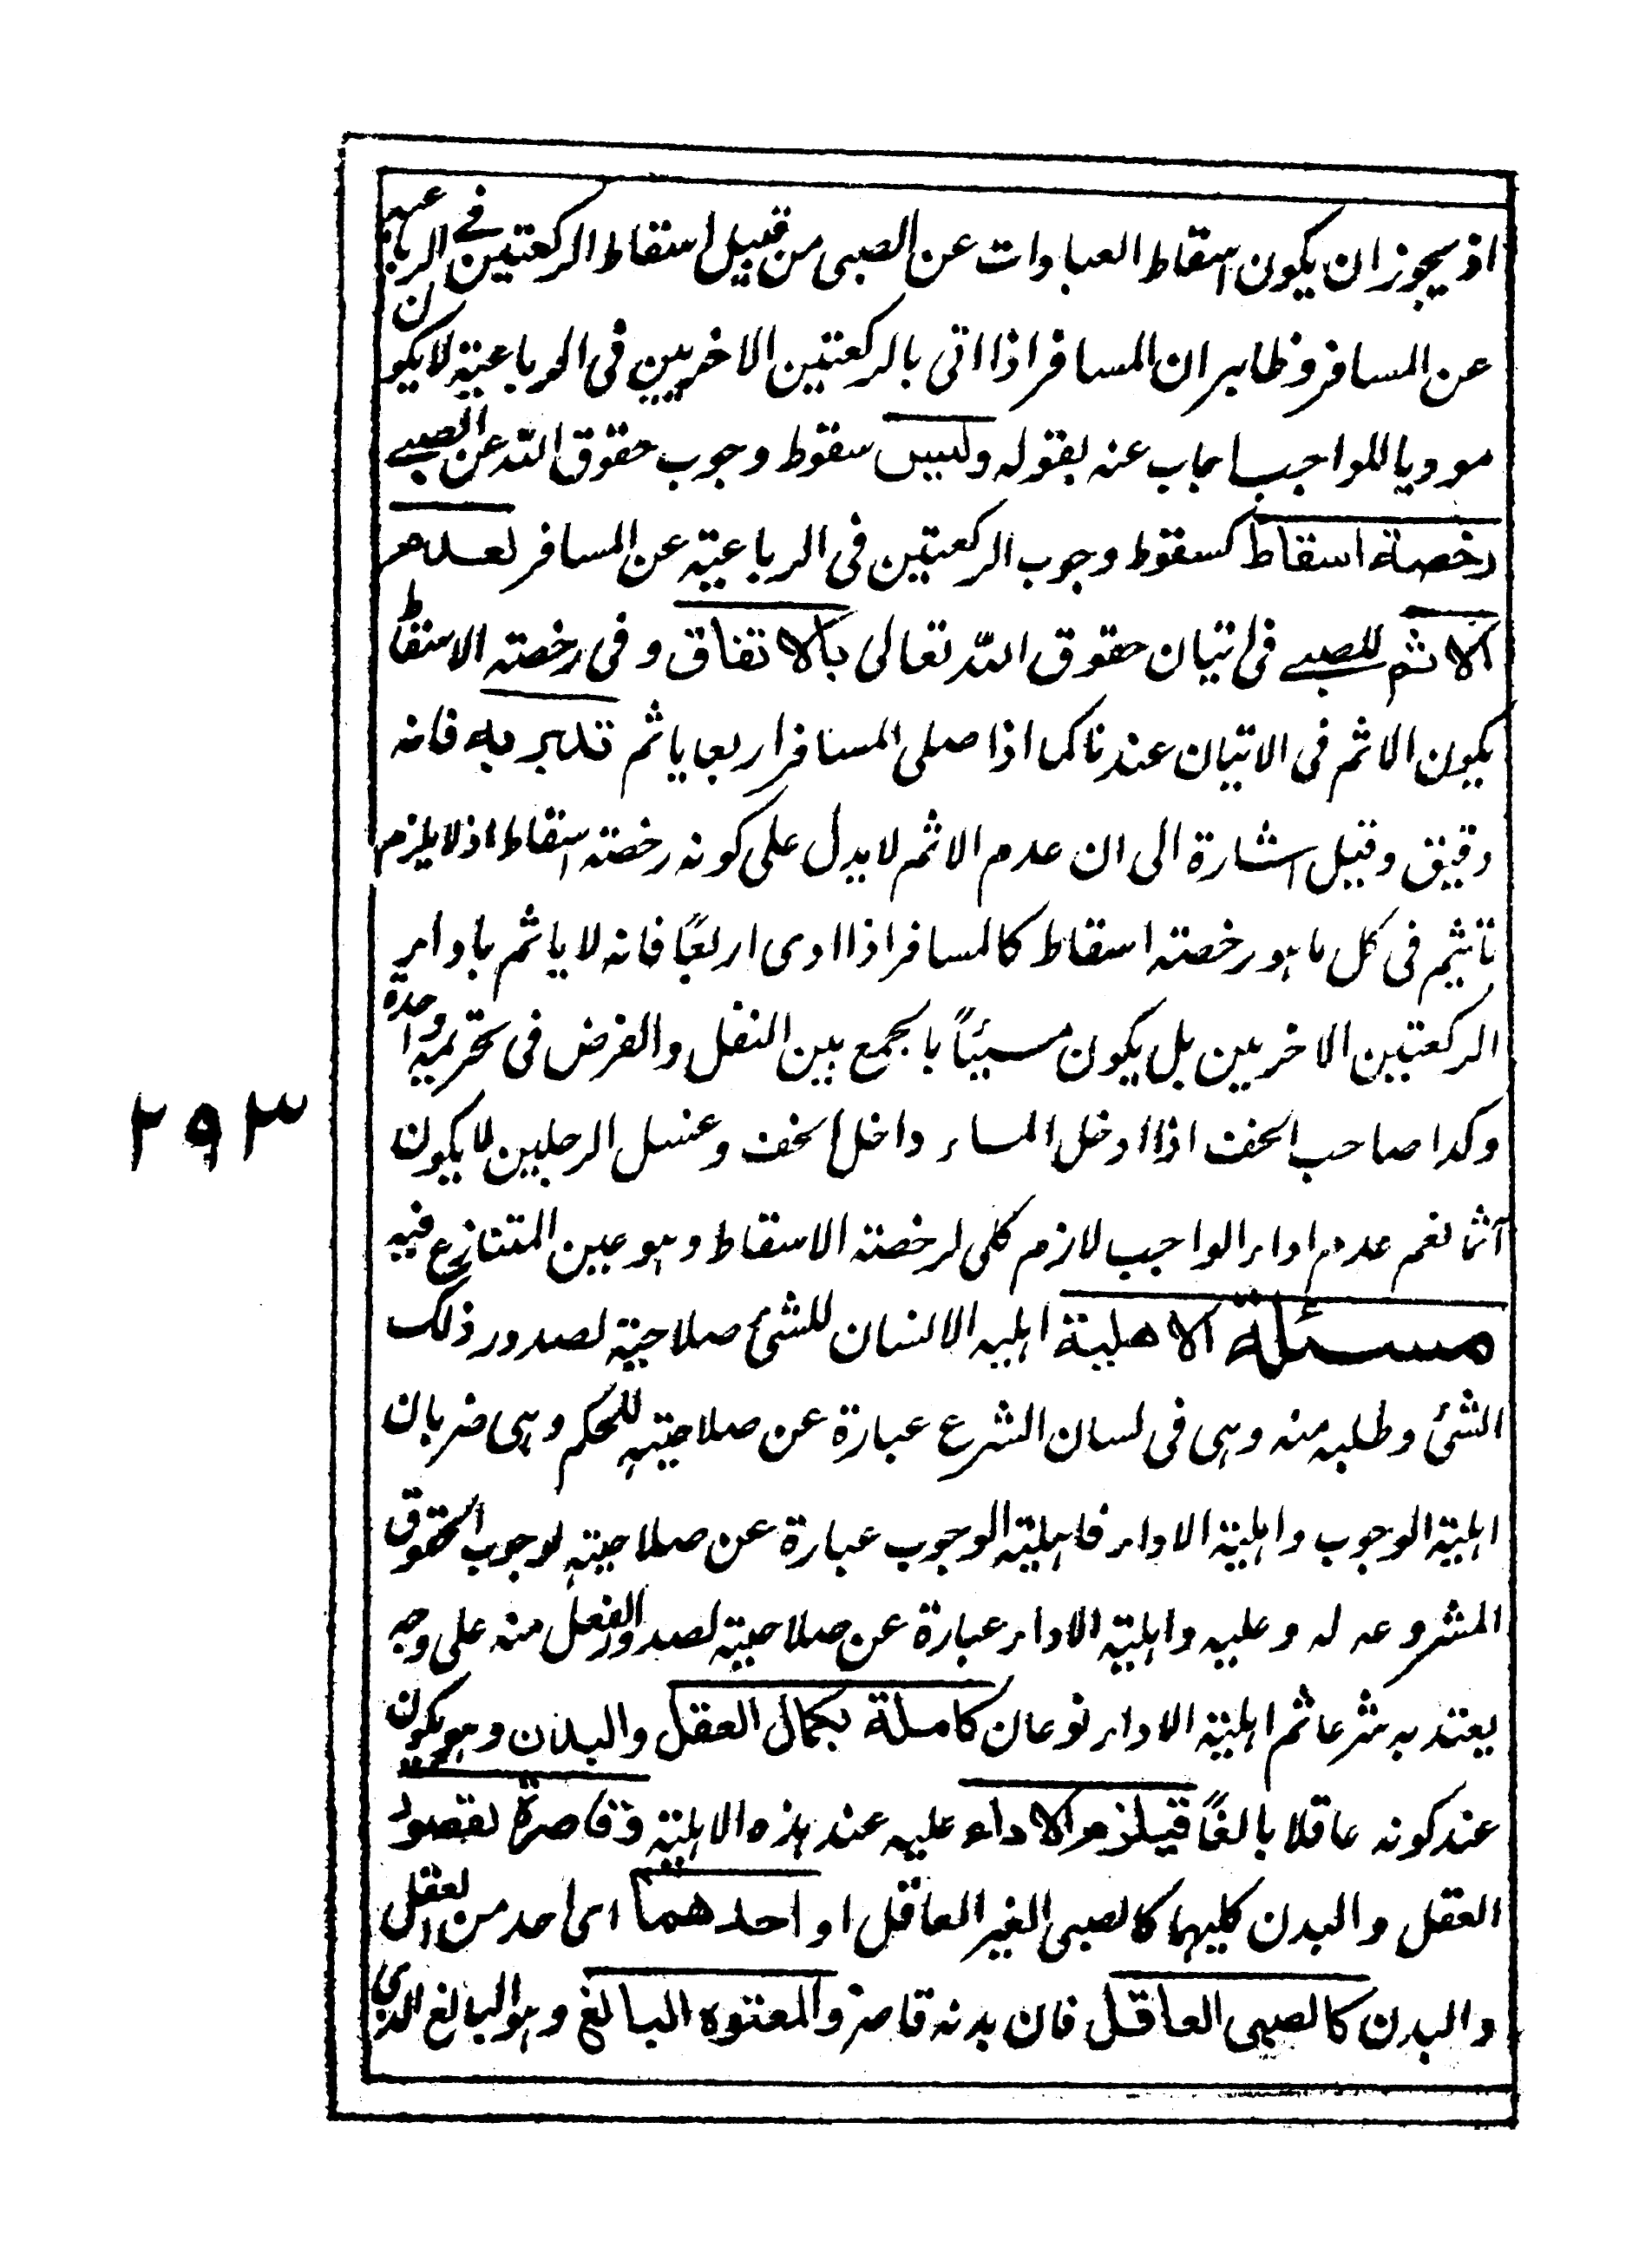 اذ يجوز ان يكون اسقاط العبادات عن الصبى من قبيل اسقاط الركعتين فى الرباعية
عن المسافر وظاہر ان المسافر اذا اتى بالركعتين الاخريين فى الرباعية لا يكون
موديا للواجب اجاب عنه بقوله وليس سقوط وجوب حقوق الله عن الصبے
رخصة اسقاط كسقوط وجوب الركعتين فى الرباعية عن المسافر لعدم
الاثم للصبے فى اتيان حقوق الله تعالى بالاتفاق وفى رخصة الاسقاط
يكون الاثم فى الاتيان عندنا كما اذا صلى المسافر اربعا ياثم تدبر به فانه
دقيق وقيل اشارة الى ان عدم الاثم لا يدل على كونه رخصة اسقاط اذ لا يلزم
تاثيم فى كل ما ہو رخصة اسقاط كالمسافر اذا ادى اربعًا فانه لا ياثم باداء
الركعتين الاخريين بل يكون مسيئاً بالجمع بين النفل والفرض فى تحريمة واحدة
وكذا صاحب الخف اذا ادخل الماء داخل الخف وغسل الرجلين لا يكون
آثما نعم عدم اداء الواجب لازم كلى لرخصة الاسقاط وہو عين المتنازع فيه
مسئلة الاهلية اہلية الانسان للشئ صلاحية لصدور ذلك
الشئ وطلبه منه وہى فى لسان الشرع عبارة عن صلاحيته للحكم وہى ضربان
اہلية الوجوب واہلية الاداء فاہلية الوجوب عبارة عن صلاحيته لوجوب الحقوق
المشروعه له وعليه واہلية الاداء عبارة عن صلاحية لصدور الفعل منه على وجه
يعتد به شرعا ثم اہلية الاداء نوعان كاملة بكمال العقل والبدن وہو يكون
عند كونه عاقلا بالغًا فيلزم الاداء عليه عند ہذه الاہلية وقاصرة لقصور
العقل والبدن كليہما كالصبى الغير العاقل او احدهما اى احد من العقل
والبدن كالصبى العاقل فان بدنه قاصر والمعتوه البالغ وہو البالغ الذي
٢٩٣